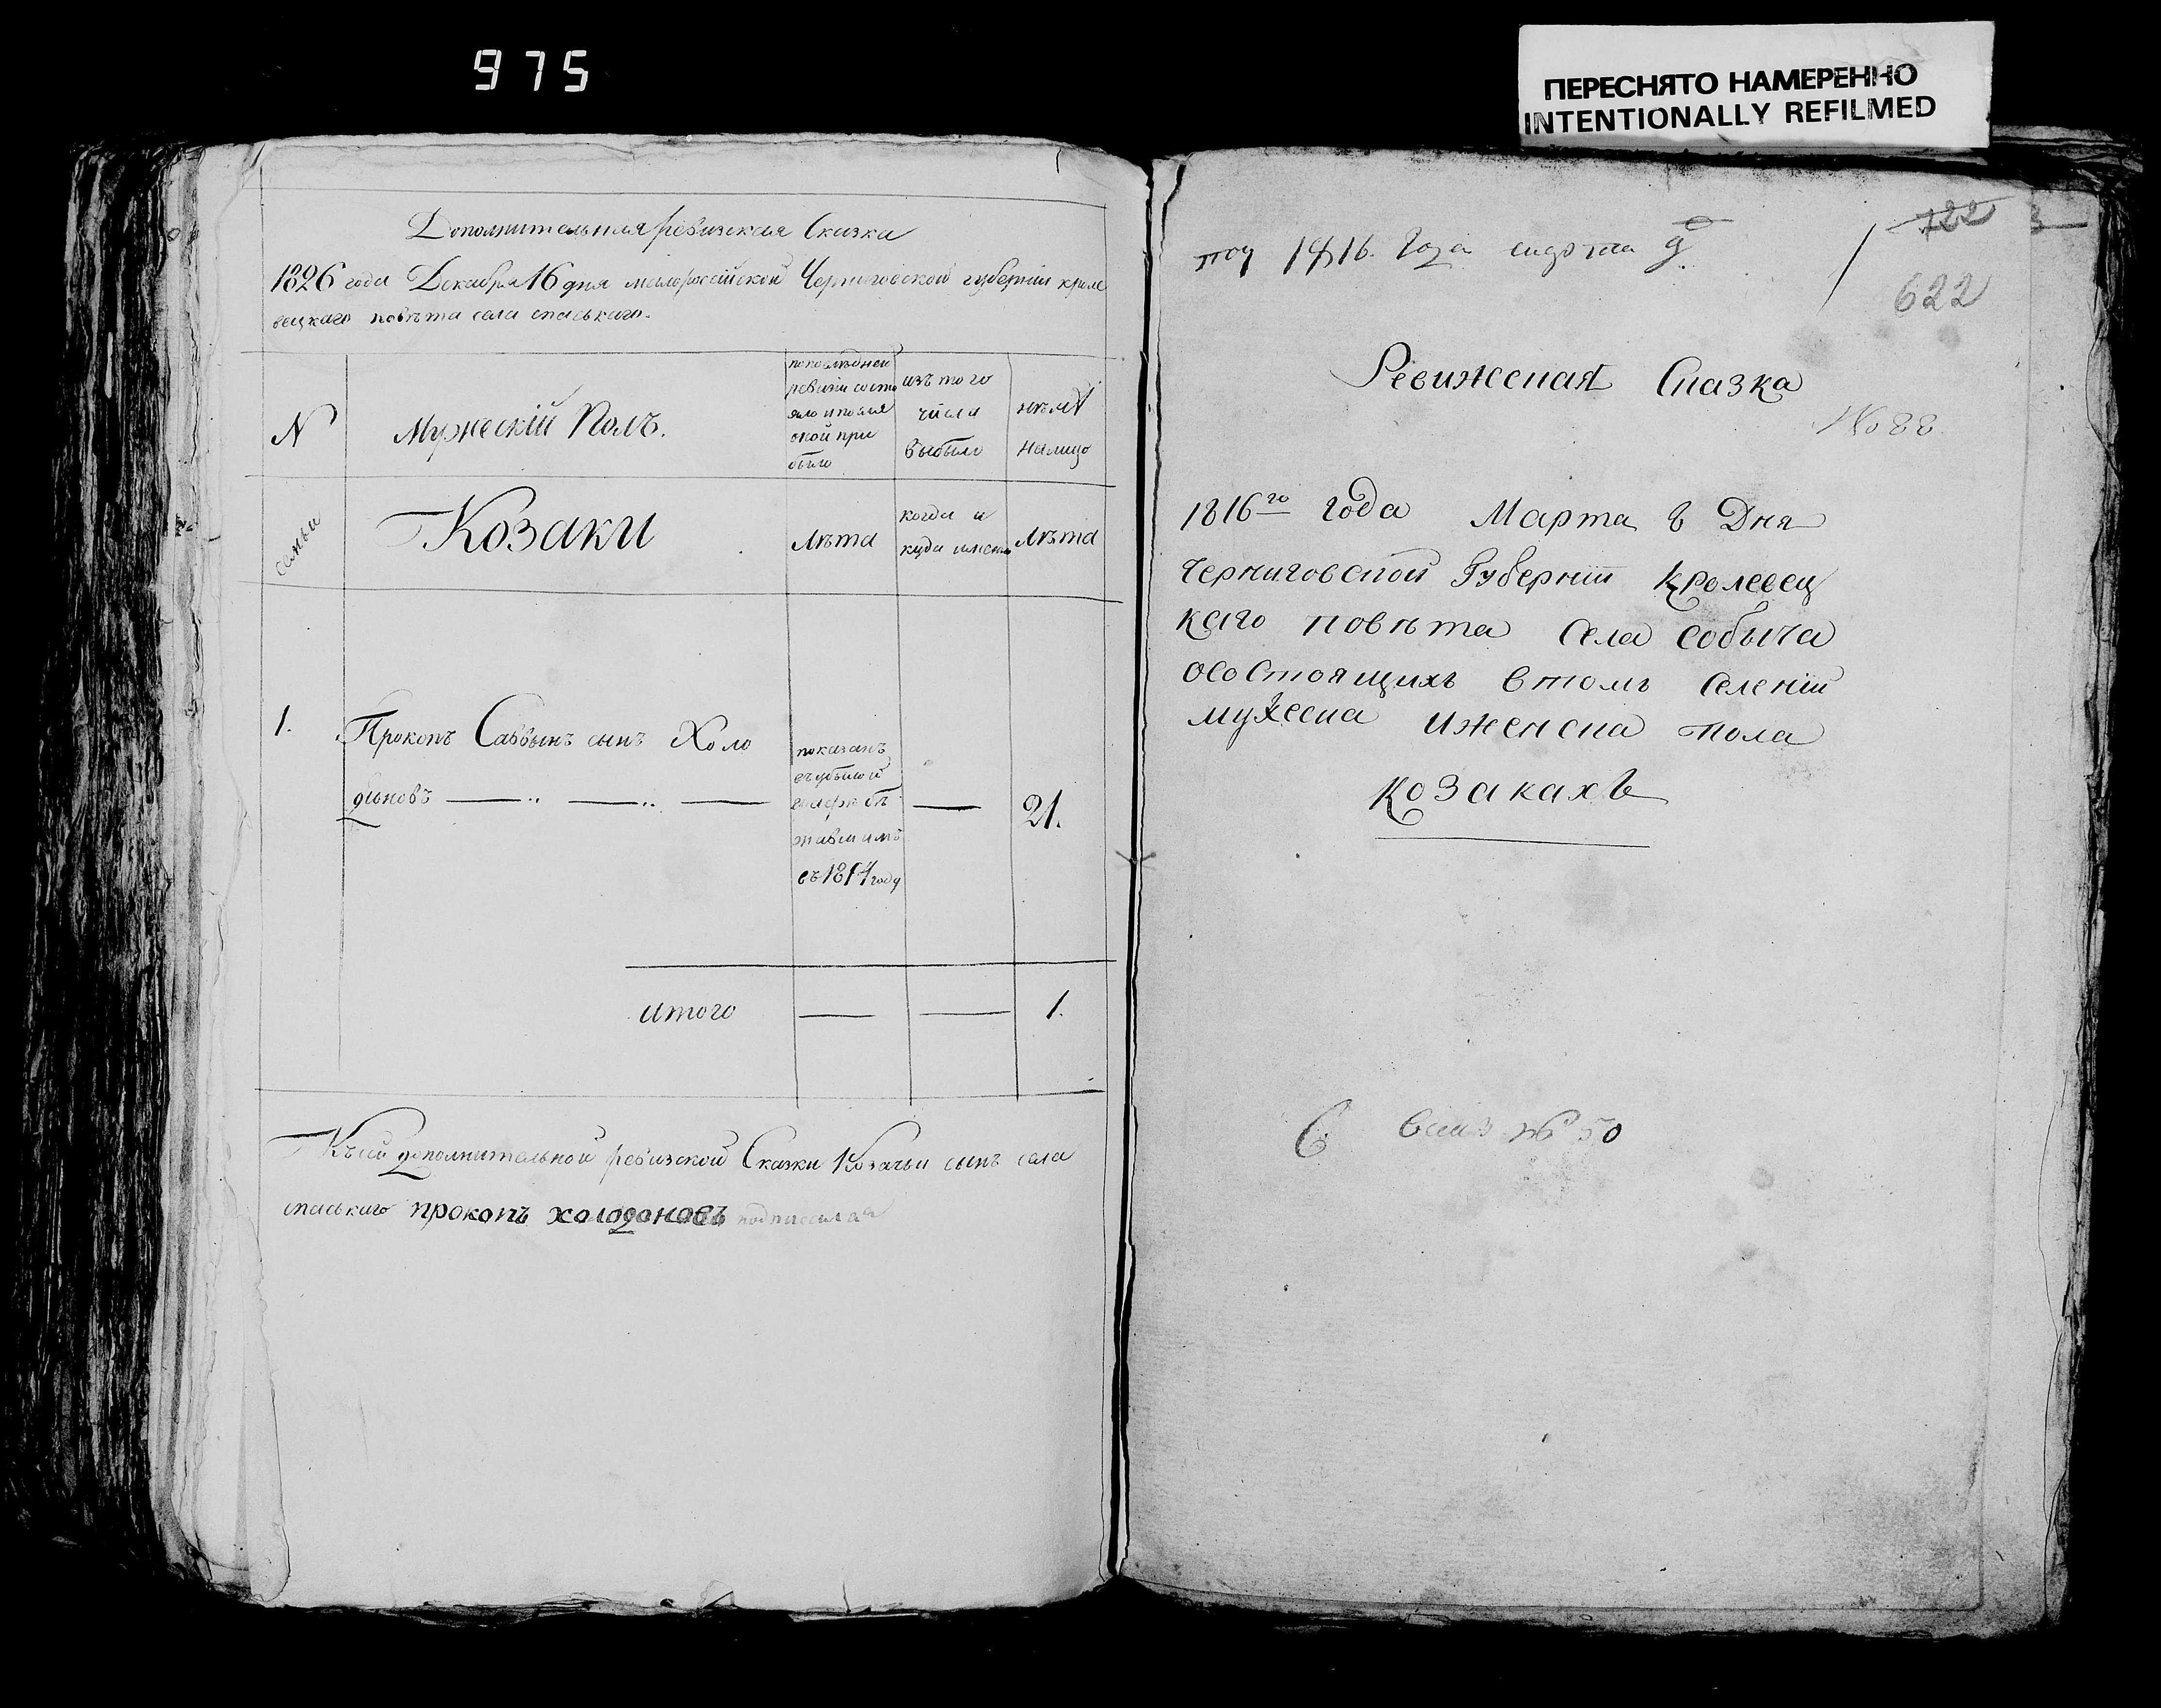 975
ПЕРЕСНЯТО НАМЕРЕННО
INTENTIONALLY REFILMED
Дополнительная ревизская Сказка
1826 года Декабря 16 дня малороссійской Черниговской губерніи кроле
вецкаго повѣта села спаскаго.
N
Мужескій Полъ.
по последней
ревизіи состо
яло и после
оной при
было
изъ того
числа
выбыло
нынѣ
налицо
семьи
Козаки
Лѣта
когда и
куда именно
Лѣта
1.
Прокопъ Саввынъ сынъ Холо
дьновъ
показанъ
съ 1814 году
21.
итого
1.
Къ сей дополнительной ревизской Сказки Козачьи сынъ села
спаского прокопъ холодоновъ подписался
1816. Года марта
722
622
Ревижская Сказка
№ 88
1816го года Марта 8 Дня
Черниговской Губерніи Кролевец
каго повѣта Села Собыча
осостоящихъ втомъ Селеніи
мужеска иженска пола
козакахъ
№ 50